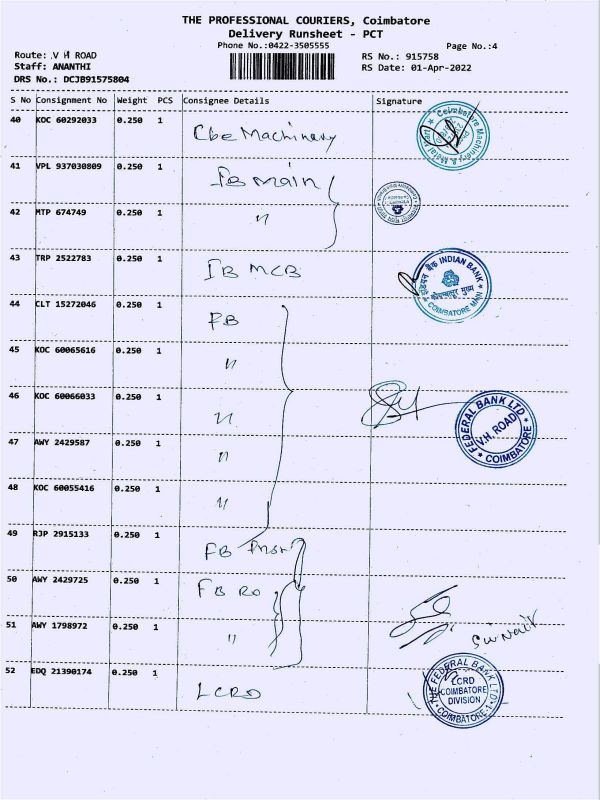 THE PROFESSIONAL COURIERS, Coimbatore
Delivery Runsheet - PCT
Phone No.:0422-3505555
Page No.:4
Route: V H ROAD
RS No.: 915758
Staff: ANANTHI
RS Date: 01-Apr-2022
DRS No.: DCJB91575804
S No Consignment No Weight PCS Consignee Details Signature
40 KOC 60292033 0.250 1 Cbe Machinery
Coimbatore Machinery & Metal Mart
41 VPL 937030809 0.250 1 IB Main
42 MTP 674749 0.250 1 "
43 TRP 2522783 0.250 1 IB MCB
इंडियन बैंक INDIAN BANK
कोयम्बत्तूर मुख्य
COIMBATORE MAIN
44 CLT 15272046 0.250 1 FB
45 KOC 60065616 0.250 1 "
46 KOC 60066033 0.250 1 "
FEDERAL BANK LTD
V.H. ROAD
COIMBATORE
47 AWY 2429587 0.250 1 "
48 KOC 60055416 0.250 1 "
49 RJP 2915133 0.250 1 FB
50 AWY 2429725 0.250 1 FB RO
51 AWY 1798972 0.250 1 "
52 EDQ 21390174 0.250 1 LCRD
THE FEDERAL BANK LTD.
LCRD
COIMBATORE
DIVISION
COIMBATORE-1